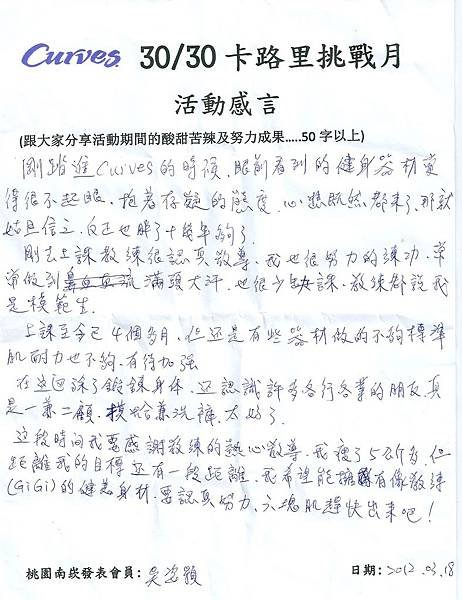 Curves 30/30卡路里挑戰月
活動感言
(跟大家分享活動期間的酸甜苦辣及努力成果.....50字以上)
剛踏進Curves的時候,眼前看到的健身器材覺
得很不起眼,抱著存疑的態度,心想既然都來了,那就
姑且信之,反正也胖了十幾年夠了.
剛去上課教練很認真教導,我也很努力的練功,常
常做到 滿頭大汗,也很少缺課,教練都說我
是模範生.
上課至今已4個多月,但还是有些器材做的不夠標準
肌耐力也不夠,有待加強
在這裡除了鍛鍊身体,还認識許多各行各業的朋友真
是一兼二顧,摸蛤兼洗褲,太好了.
這段時間我要感謝教練的熱心教導,我瘦了5公斤多,但
距離我的目標还有一段距離,我希望能擁有像教練
(GiGi)的健美身材,要認真努力,六塊肌趕快出來吧!
桃園南崁發表會員:吳 穎
日期:2012.03.18